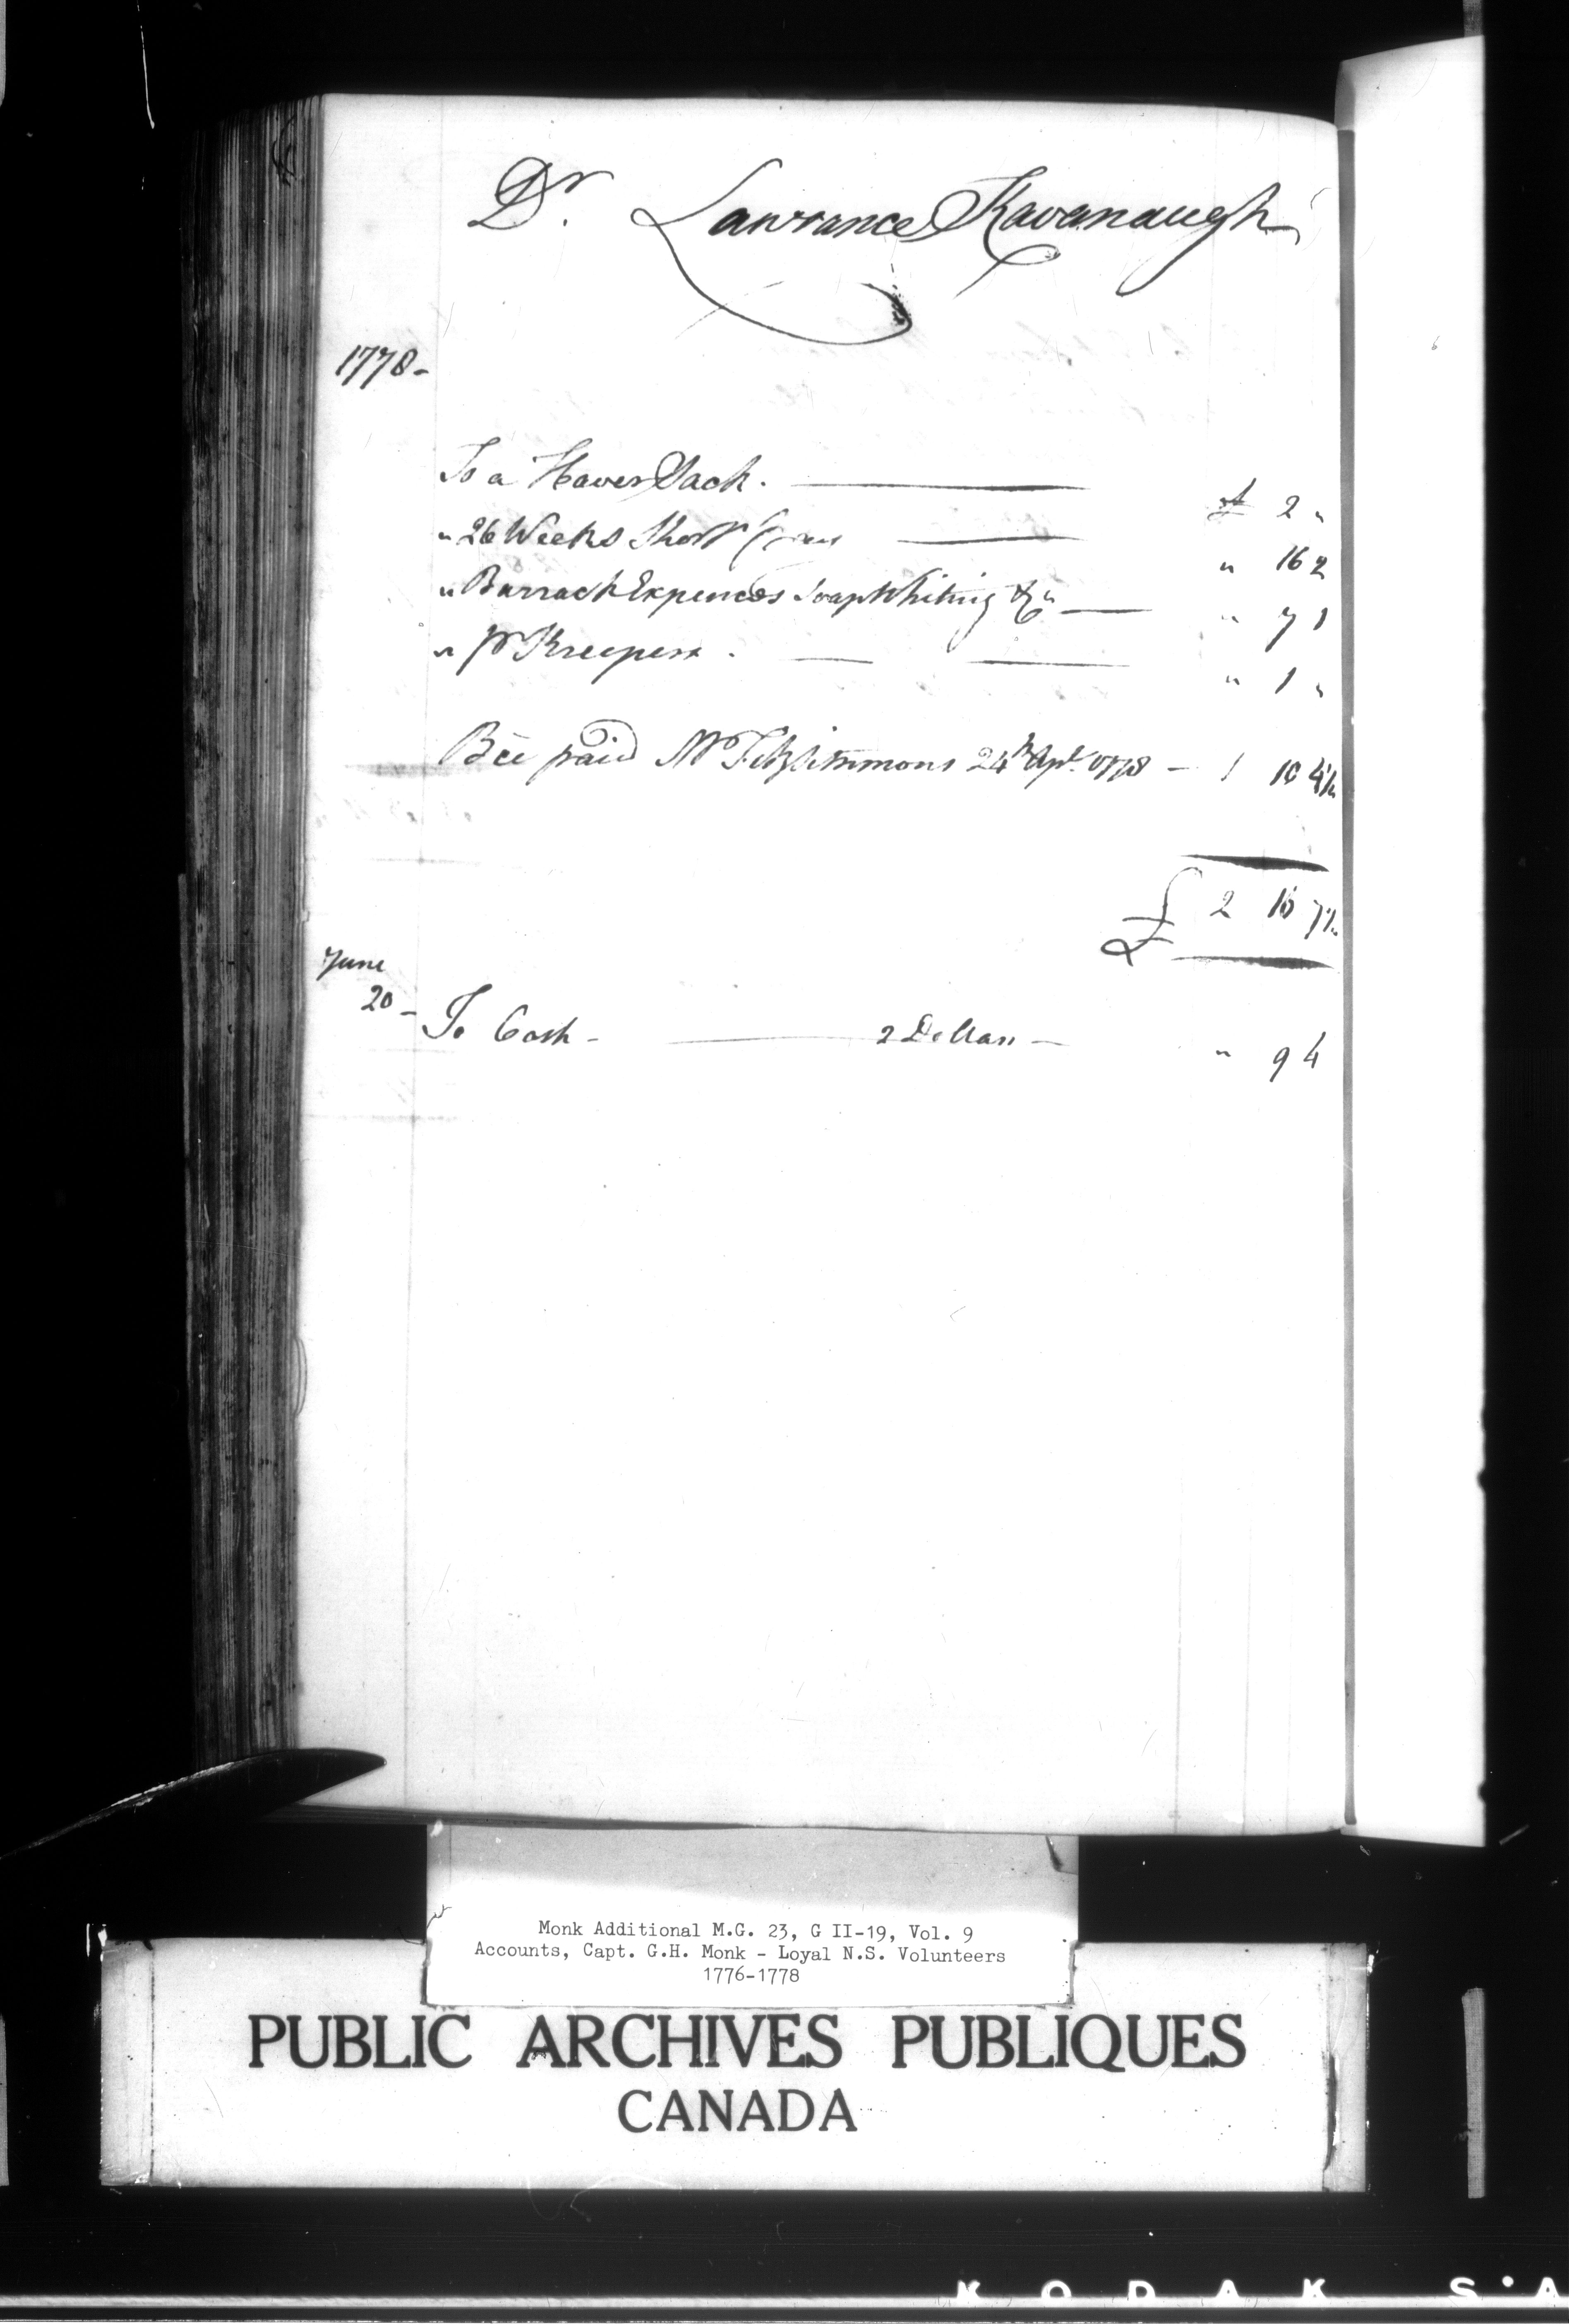 Dr. Lawrance Kavanaugh
1778-
To a Haver Sack. £ 2 "
" 26 Weeks Short " 16 2
" Barrack Expences Soap Whiting &c " 7 1
" pr Kreepers . " 1 "
Bce paid Mr Fitzsimmons 24th Apl. 1778 - 1 10 4½
£ 2 16 7½
June
20 - To Cash - 2 Dollars - " 9 4
Monk Additional M.G. 23, G II-19, Vol. 9
Accounts, Capt. G.H. Monk - Loyal N.S. Volunteers
1776-1778
PUBLIC ARCHIVES PUBLIQUES
CANADA
KODAK S.A